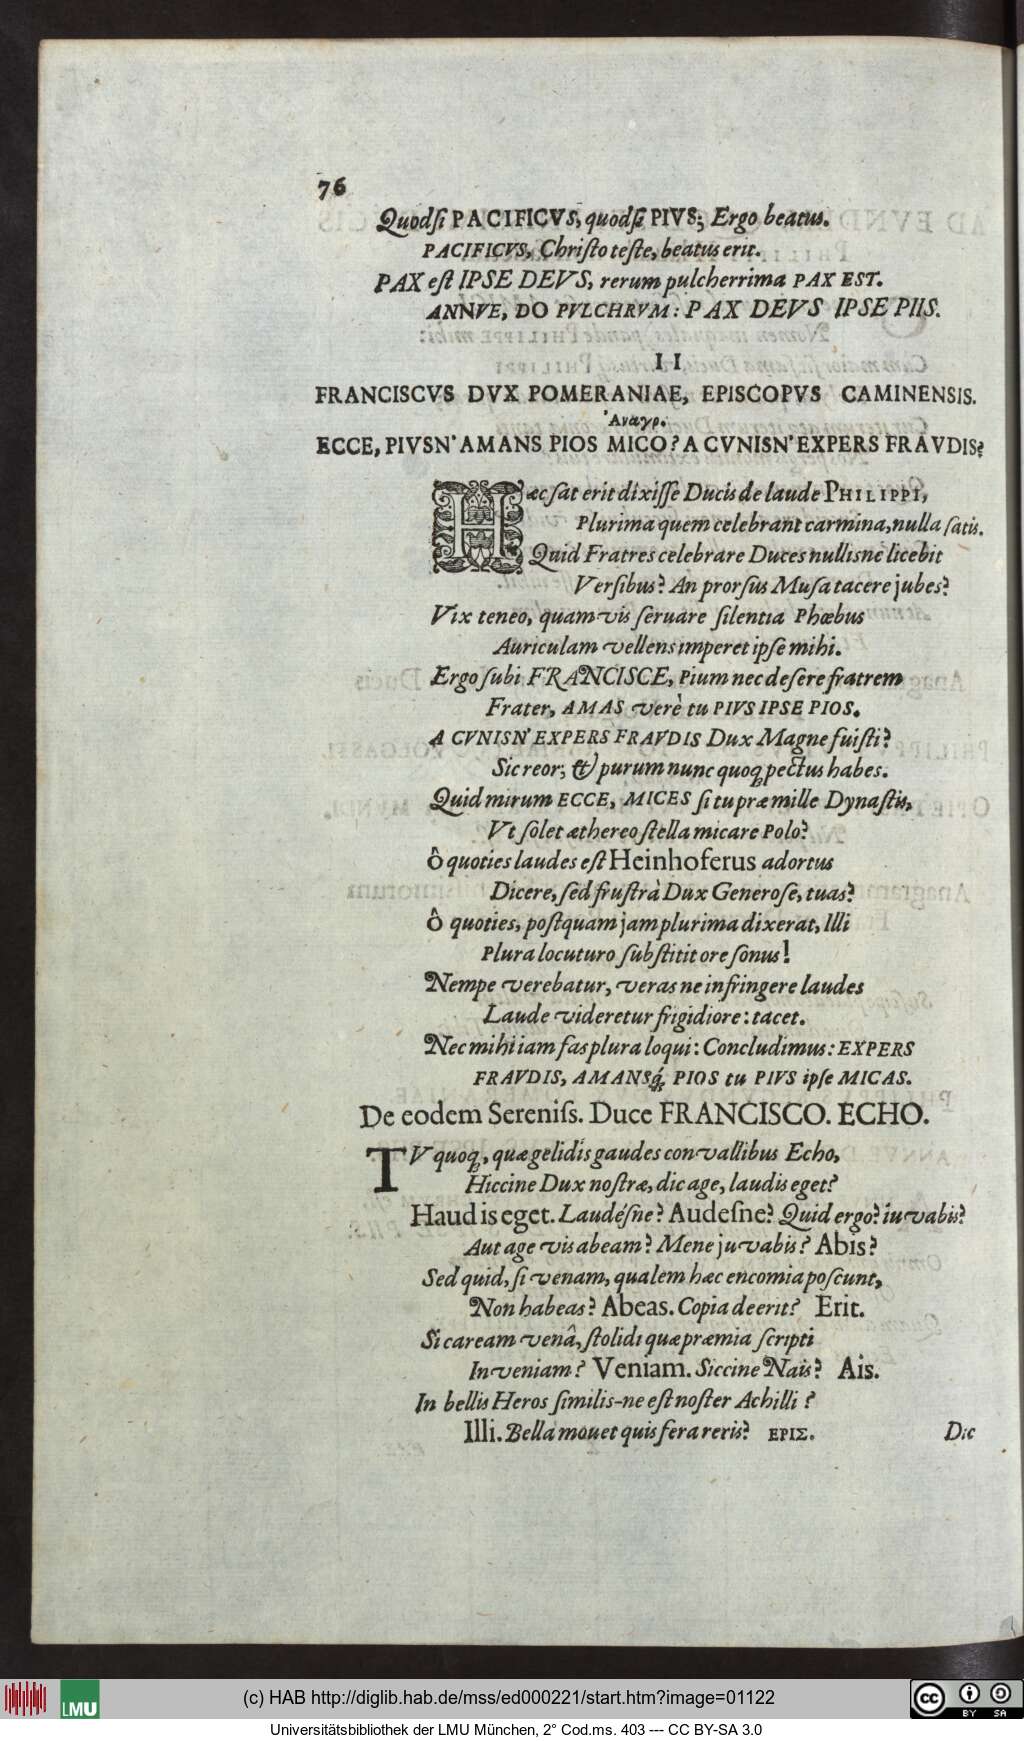 76
Quodſi PACIFICVS, quodſi PIVS; Ergo beatus.
PACIFICVS, Chriſto teſte, beatus erit.
PAX eſt IPSE DEVS, rerum pulcherrima PAX EST.
ANNVE, DO PVLCHRVM: PAX DEVS IPSE PIIS.
II
FRANCISCVS DVX POMERANIAE, EPISCOPVS CAMINENSIS.
Ἀναγρ.
ECCE, PIVSN' AMANS PIOS MICO? A CVNISN' EXPERS FRAVDIS?
Hæc ſat erit dixiſſe Ducis de laude PHILIPPI,
Plurima quem celebrant carmina, nulla ſatis.
Quid Fratres celebrare Duces nullisne licebit
Verſibus? An prorſus Muſa tacere jubes?
Vix teneo, quamvis ſeruare ſilentia Phœbus
Auriculam vellens imperet ipſe mihi.
Ergo ſubi FRANCISCE, Pium nec deſere fratrem
Frater, AMAS verè tu PIVS IPSE PIOS.
A CVNISN' EXPERS FRAVDIS Dux Magne fuiſti?
Sic reor; & purum nunc quoq; pectus habes.
Quid mirum ECCE, MICES ſi tu præ mille Dynaſtis,
Vt ſolet æthereo ſtella micare Polo?
ô quoties laudes eſt Heinhoferus adortus
Dicere, ſed fruſtrà Dux Generoſe, tuas?
ô quoties, poſtquam jam plurima dixerat, Illi
Plura locuturo ſubſtitit ore ſonus!
Nempe verebatur, veras ne infringere laudes
Laude videretur frigidiore: tacet.
Nec mihi iam fas plura loqui: Concludimus: EXPERS
FRAVDIS, AMANSq́; PIOS tu PIVS ipſe MICAS.
De eodem Sereniſs. Duce FRANCISCO. ECHO.
TV quoq;, quæ gelidis gaudes convallibus Echo,
Hiccine Dux noſtræ, dic age, laudis eget?
Haud is eget. Laudéſne? Audeſne? Quid ergo? iuvabis?
Aut age vis abeam? Mene juvabis? Abis?
Sed quid, ſi venam, qualem hæc encomia poſcunt,
Non habeas? Abeas. Copia deerit? Erit.
Si caream venâ, ſtolidi quæ præmia ſcripti
Inveniam? Veniam. Siccine Nais? Ais.
In bellis Heros ſimilis-ne eſt noſter Achilli?
Illi. Bella mouet quis fera reris? ΕΡΙΣ.
Dic
LMU
(c) HAB http://diglib.hab.de/mss/ed000221/start.htm?image=01122
cc BY SA
Universitätsbibliothek der LMU München, 2° Cod.ms. 403 --- CC BY-SA 3.0